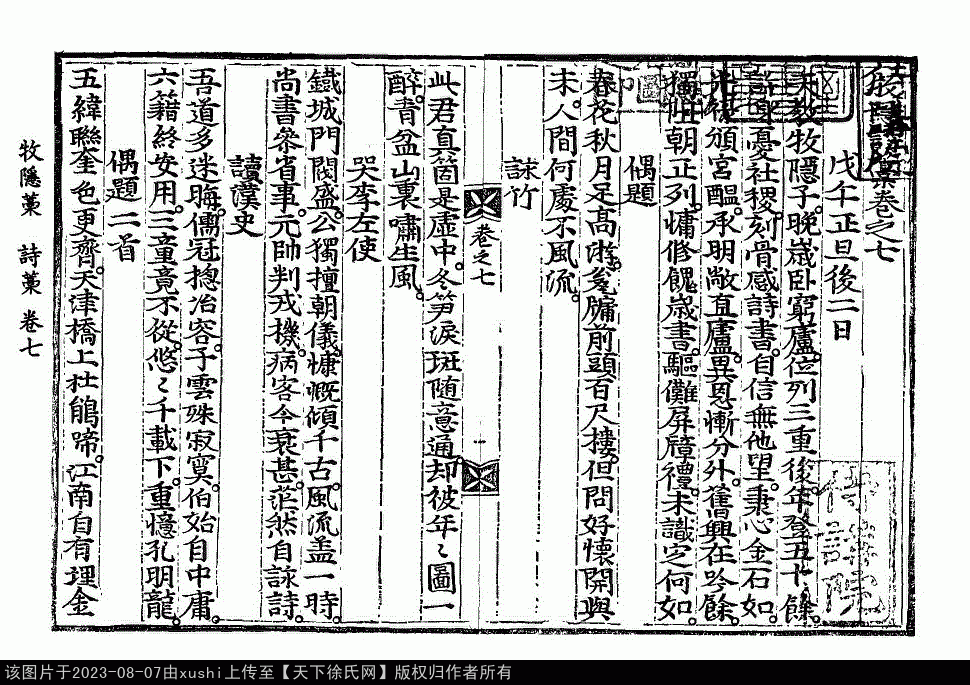 牧隱藁卷之七
戊午正旦後二日
教牧隱子晚歲卧窮廬位列三重後年登五十餘
憂社稷刻骨感詩書自信無他望秉心金石如
頒宮醞承明敞直廬異恩慚分外舊興在吟餘
獨阻朝正列慵修餽歲書驅儺屏障禮未識定何如
偶題
春花秋月足高遊瓮牖前頭百尺摟但問好懷開與
未人間何處不風流
詠竹
卷之七
此君真箇是虛中冬笋淚斑随意通却被年〻圖一
醉書盆山裏嘯生風
哭李左使
鐵城門閥盛公獨擅朝儀慷慨傾千古風流盖一時
尚書叅省事元帥判戎機病客今衰甚茫然自詠詩
讀漢史
吾道多迷晦儒冠揔冶容子雲殊寂寞伯始自中庸
六籍終安用三童竟不從悠〻千載下重憶孔明龍
偶題二首
五緯聯奎色更齊天津橋上杜鵑啼江南自有理金
牧隱藁 詩藁 卷七
该图片于2023-08-07由xushi上传至【天下徐氏网】版权归作者所有